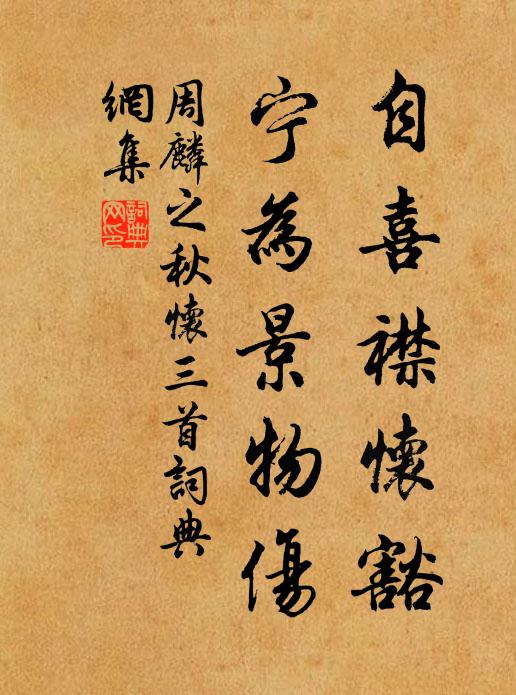 自喜襟懷豁
宁為景物傷
周麟之秋懷三首詞典
網集
詞典
网印